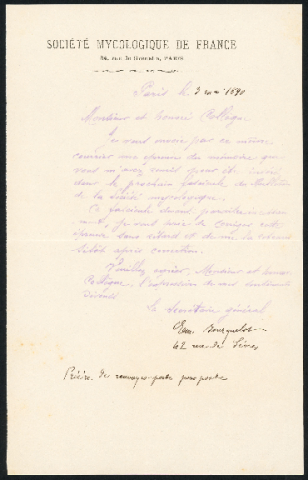 SOCIÉTÉ MYCOLOGIQUE DE FRANCE
84, rue de Grenelle, PARIS
Paris le 3 mai 1890
Monsieur et honoré Collègue
Je vous envoie par ce même
courrier une épreuve du mémoire que
vous m'avez remis pour être inséré
dans le prochain fascicule du Bulletin
de la Société mycologique.
Ce fascicule devant paraître
je vous prie de corriger cette
épreuve sans retard et de me la retourner
aussitôt après correction.
Veuillez agréer, Monsieur et honoré
Collègue, l'expression de mes sentiments
dévoués
Le Secrétaire général
Em. Bourquelot
42 rue de Sèvres
Prière de renvoyer poste pour poste